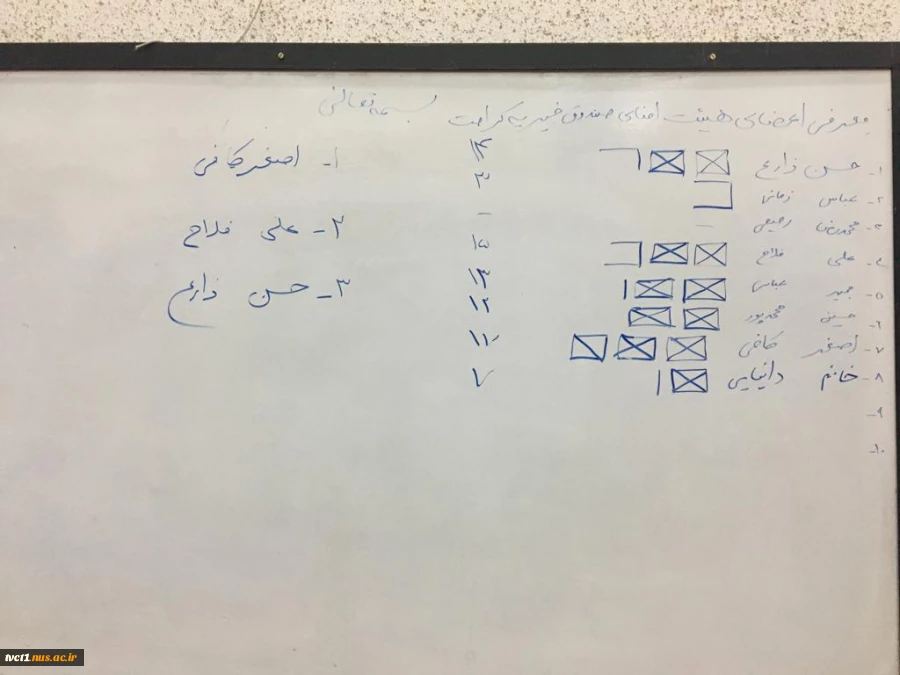 بسمه تعالی
معرفی اعضای هیئت امنای صندوق خیریه کرامت
۱- حسن زارع ۱۴
۲- عباس زمانی ۳
۳- محمدرضا رحیمی -
۴- علی فلاح ۱۵
۵- مجید عباسی ۱۳
۶- حسین محمدپور ۱۲
۷- اصغر کافی
۸- خانم دانیایی ۷
۹-
۱۰-
۱- اصغر کافی
۲- علی فلاح
۳- حسن زارع
tvct1.nus.ac.ir